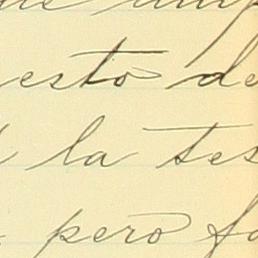 esto de
la tes
pero fo